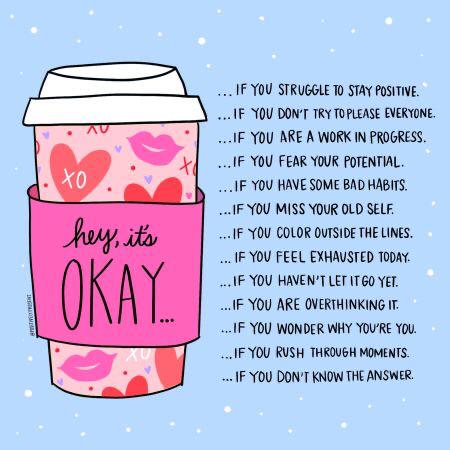 XO
XO
hey, it's
OKAY...
@POSITIVELYPRESENT
XO
... IF YOU STRUGGLE TO STAY POSITIVE.
... IF YOU DON'T TRY TO PLEASE EVERYONE.
... IF YOU ARE A WORK IN PROGRESS.
... IF YOU FEAR YOUR POTENTIAL.
... IF YOU HAVE SOME BAD HABITS.
... IF YOU MISS YOUR OLD SELF.
... IF YOU COLOR OUTSIDE THE LINES.
... IF YOU FEEL EXHAUSTED TODAY.
... IF YOU HAVEN'T LET IT GO YET.
... IF YOU ARE OVERTHINKING IT.
... IF YOU WONDER WHY YOU'RE YOU.
... IF YOU RUSH THROUGH MOMENTS.
... IF YOU DON'T KNOW THE ANSWER.